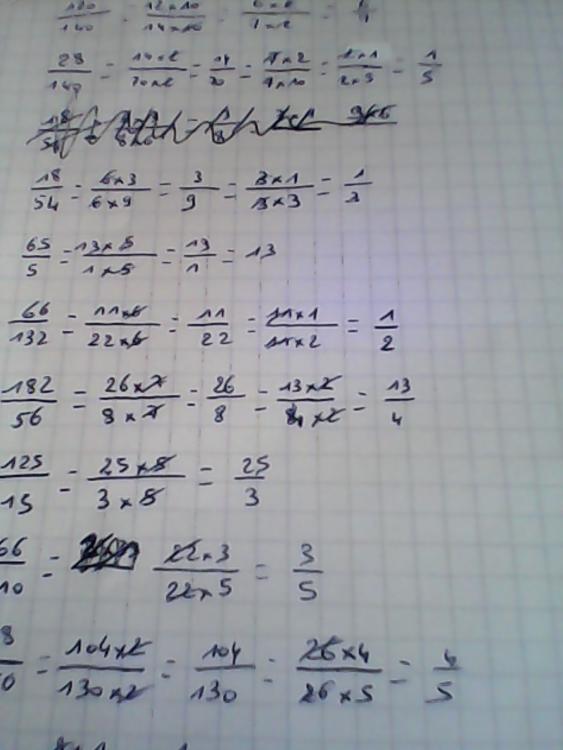 120/140 = 12×10/14×10 =
28/140 = 14×2/70×2 = 14/70 = 7×2/7×10 = 2×1/2×5 = 1/5
18/54 = 6×3/6×9 = 3/9 = 3×1/3×3 = 1/3
65/5 = 13×5/1×5 = 13/1 = 13
66/132 = 11×6/22×6 = 11/22 = 11×1/11×2 = 1/2
182/56 = 26×7/8×7 = 26/8 = 13×2/4×2 = 13/4
125/15 = 25×5/3×5 = 25/3
66/10 = 22×3/22×5 = 3/5
8/0 = 104×2/130×2 = 104/130 = 26×4/26×5 = 4/5